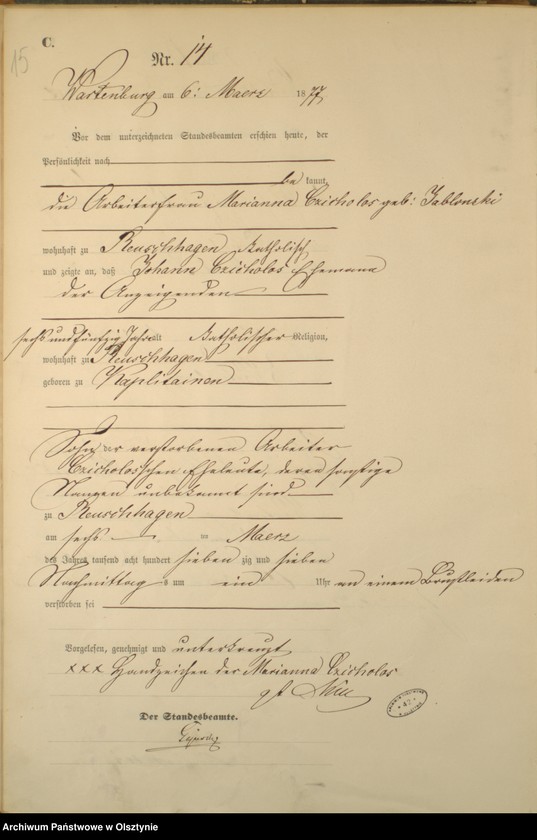 C.
15
Nr. 14
Wartenburg am 6: Maerz 1877
Vor dem unterzeichneten Standesbeamten erschien heute, der
Persönlichkeit nach
be kannt,
die Arbeiterfrau Marianna Czicholos geb: Jablonski
wohnhaft zu Reuschhagen katholisch
und zeigte an, daß Johann Czicholos Ehemann
der Anzeigenden
sechs und fünfzig Jahre alt katholischer Religion,
wohnhaft zu Reuschhagen
geboren zu Kaplitainen
Sohn der verstorbenen Arbeiter
Czicholos'schen Eheleute, deren sonstige
Namen unbekannt sind
zu Reuschhagen
am sechs im Maerz
des Jahres tausend acht hundert sieben zig und sieben
Nachmittag s um ein Uhr an einem Brustleiden
verstorben sei
Vorgelesen, genehmigt und unterkreuzt
xxx Handzeichen der Marianna Czicholos
Der Standesbeamte.
Archiwum Państwowe w Olsztynie